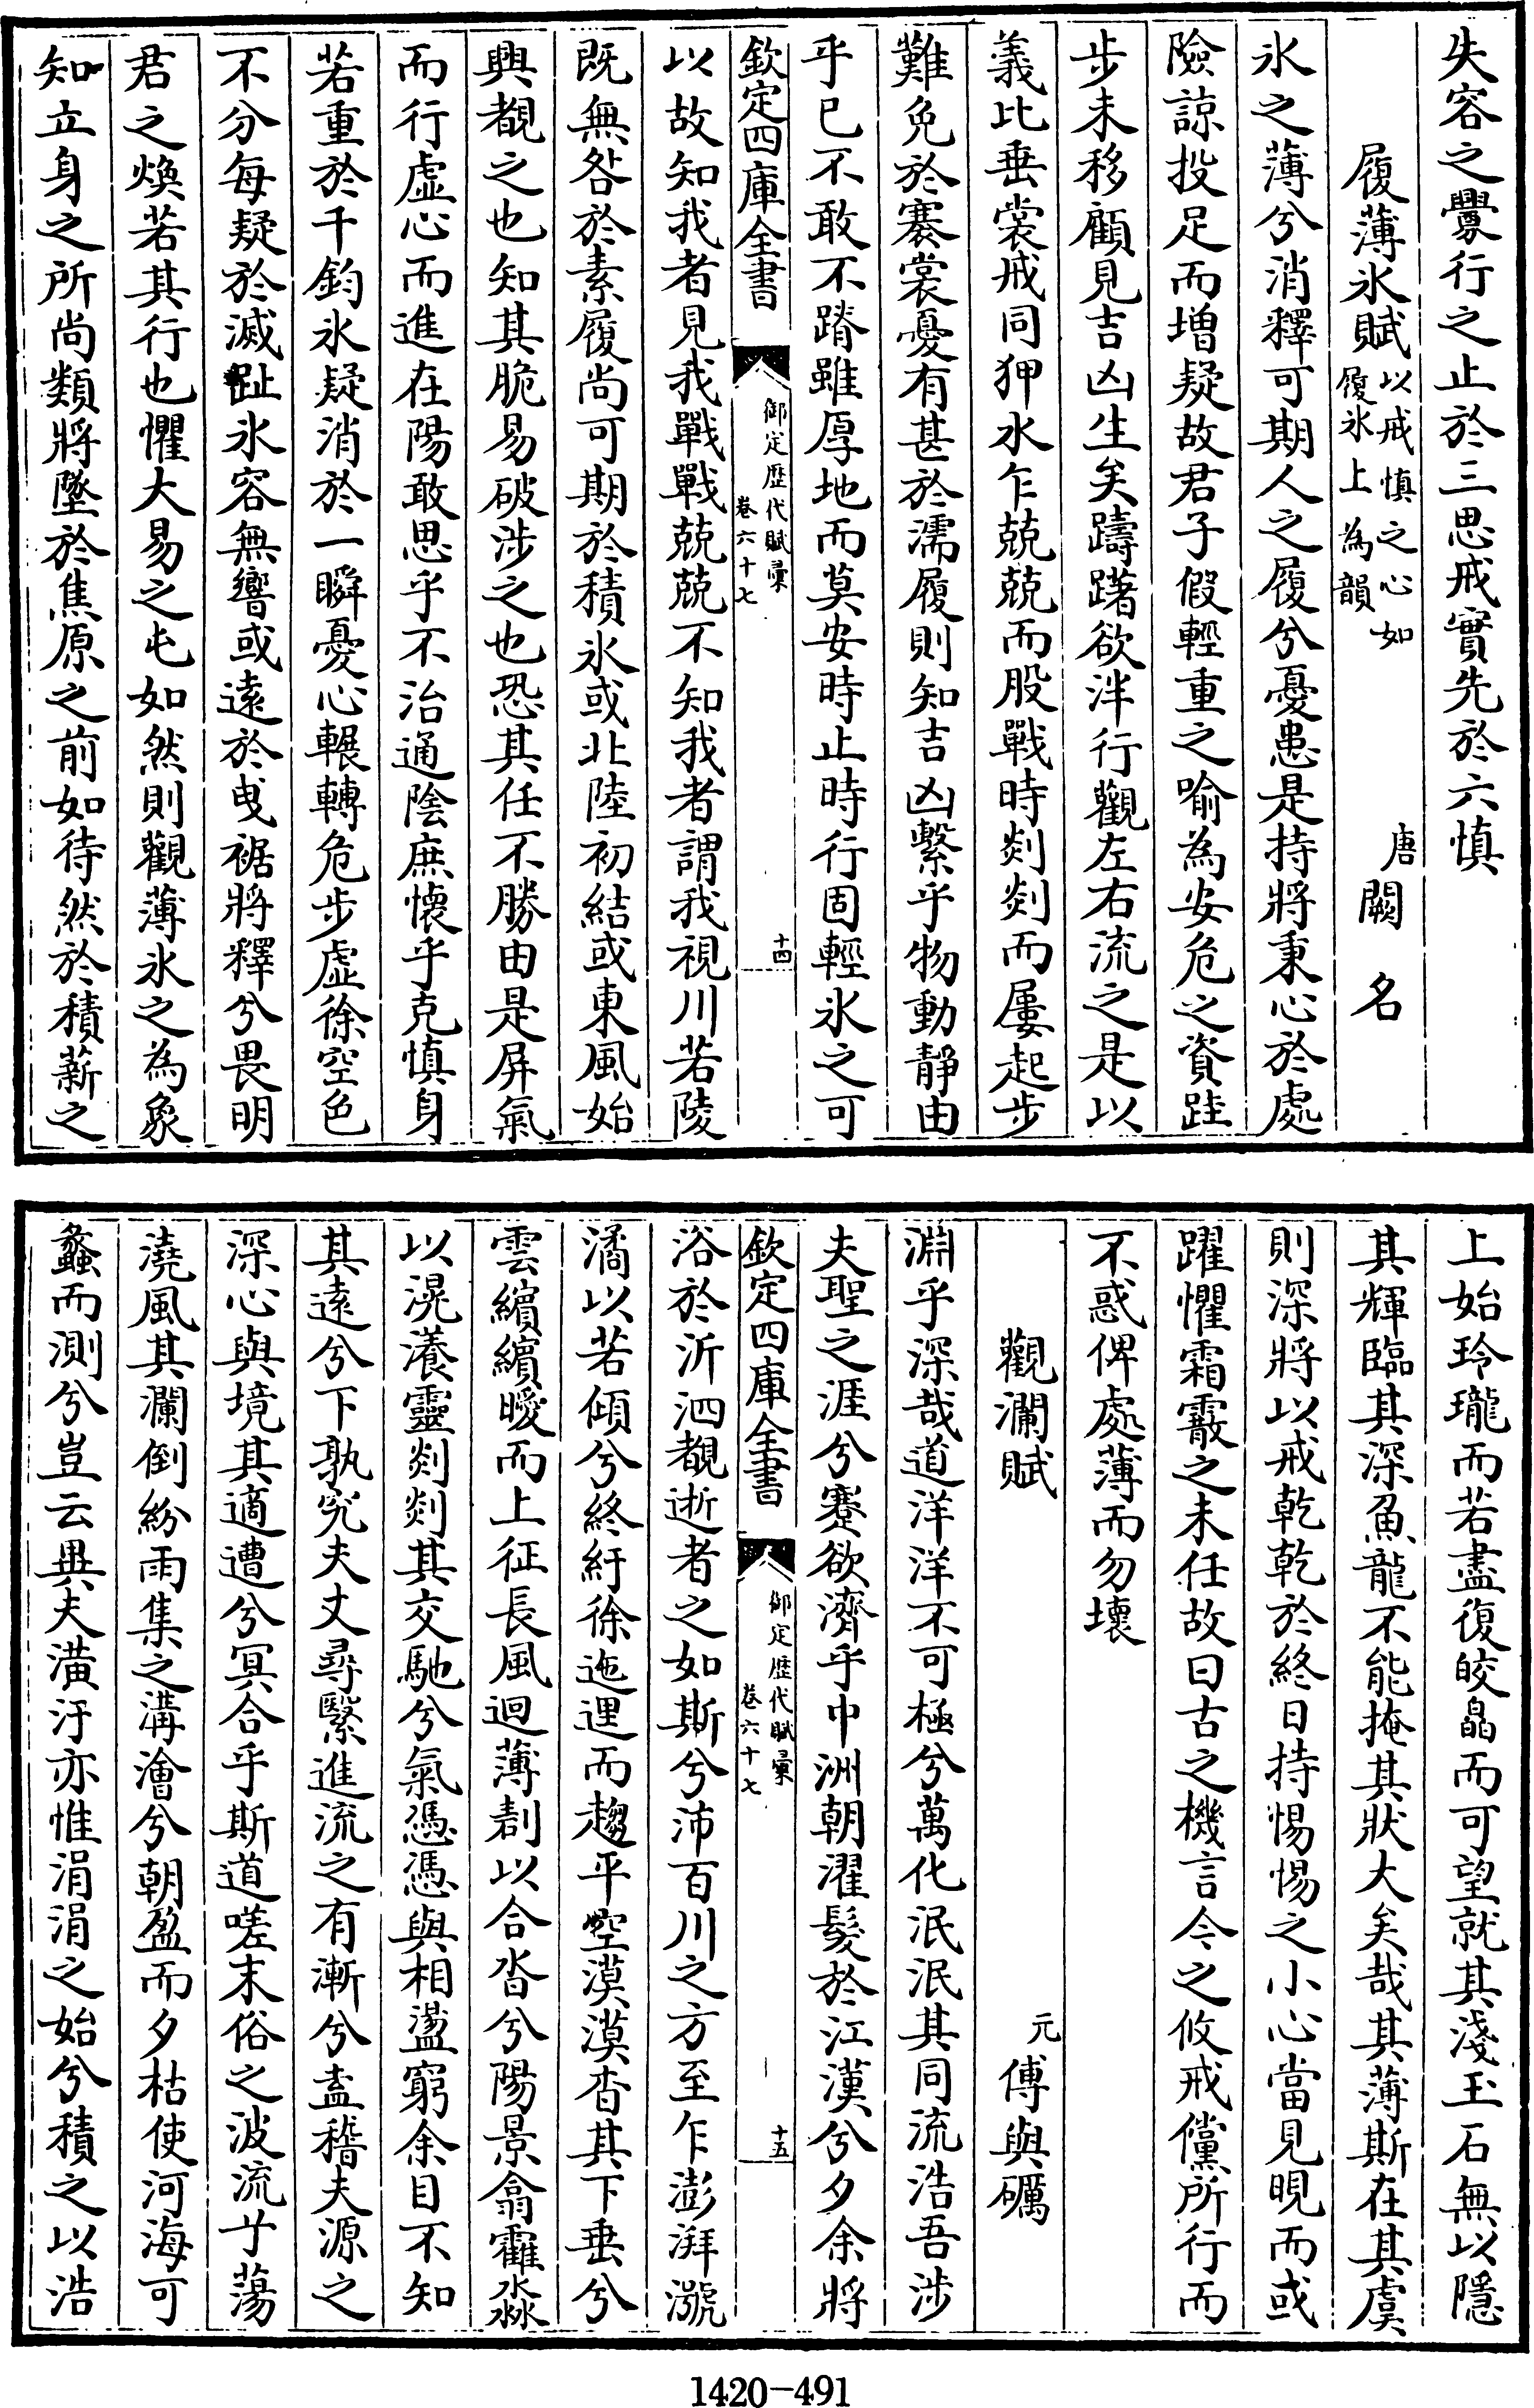 失容之釁行之止於三思戒實先於六慎
履薄氷賦以戒慎之心如履氷上為韻 唐闕名
氷之薄兮消釋可期人之履兮憂患是持將秉心於處
險諒投足而增疑故君子假輕重之喻為安危之資跬
步未移顧見吉凶生矣躊躇欲泮行觀左右流之是以
義比垂裳戒同狎水乍兢兢而股戰時剡剡而屢起步
難免於褰裳憂有甚於濡履則知吉凶繫乎物動靜由
乎已不敢不蹐雖厚地而莫安時止時行固輕氷之可
欽定四庫全書 御定歴代賦彙 卷六十七 十四
以故知我者見我戰戰兢兢不知我者謂我視川若陵
既無咎於素履尚可期於積氷或北陸初結或東風始
興覩之也知其脆易破涉之也恐其任不勝由是屏氣
而行虛心而進在陽敢思乎不治通陰庶懷乎克慎身
若重於千鈞氷疑消於一瞬憂心輾轉危步虛徐空色
不分每疑於滅趾氷容無響或遠於曵裾將釋兮畏明
君之煥若其行也懼大易之屯如然則觀薄氷之為象
知立身之所尚類將墜於焦原之前如待然於積薪之
上始玲瓏而若盡復皎皛而可望就其淺玉石無以隱
其輝臨其深魚龍不能掩其狀大矣哉其薄斯在其虞
則深將以戒乾乾於終日持惕惕之小心當見晛而或
躍懼霜霰之未任故曰古之機言今之攸戒儻所行而
不惑俾處薄而勿壞
觀瀾賦 元傅與礪
淵乎深哉道洋洋不可極兮萬化泯泯其同流浩吾涉
夫聖之涯兮蹇欲濟乎中洲朝濯髮於江漢兮夕余將
欽定四庫全書 御定歴代賦彙 卷六十七 十五
浴於沂泗覩逝者之如斯兮沛百川之方至乍澎湃瀏
潏以若傾兮終紆徐迤邐而趨平空漠漠杳其下垂兮
雲繽繽曖而上征長風迴薄剨以合沓兮陽景翕霍淼
以滉瀁靈剡剡其交馳兮氣憑憑與相盪窮余目不知
其遠兮下孰究夫丈尋緊進流之有漸兮盍稽夫源之
深心與境其適遭兮冥合乎斯道嗟末俗之波流兮蕩
澆風其瀾倒紛雨集之溝澮兮朝盈而夕枯使河海可
蠡而測兮豈云異夫潢汙亦惟涓涓之始兮積之以浩
1420-491